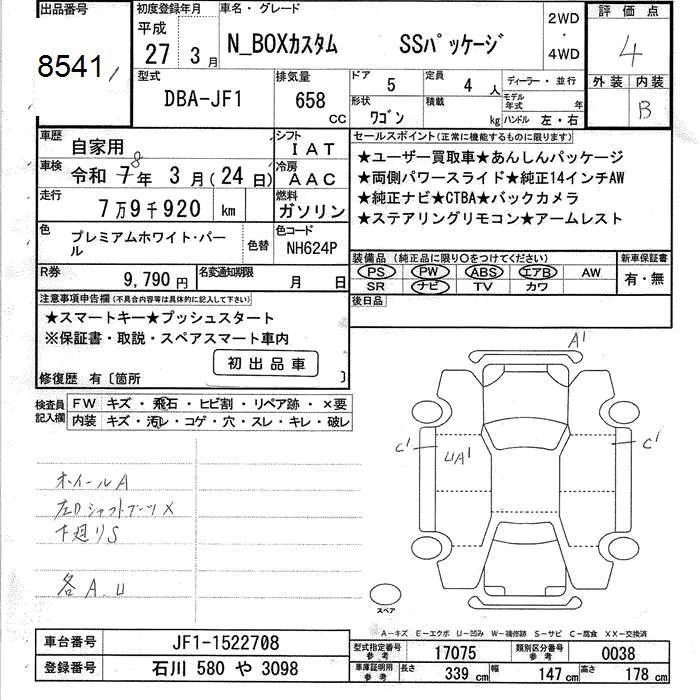 出品番号
8541
初度登録年月
平成
27 3月
車名・グレード
N_BOXカスタム SSパッケージ
2WD
・
4WD
評価点
4
外装 内装
B
型式
DBA-JF1
排気量
658 cc
ドア 5
定員 4 人
ディーラー・並行
形状 ワゴン
積載 kg
モデル年式 年
ハンドル 左・右
車歴 自家用
シフト IAT
車検 令和 7 8 年 3 月 (24 日)
冷房 AAC
走行 7万9千920 km
燃料 ガソリン
色 プレミアムホワイト・パール
色替
色コード NH624P
R券 9,790 円
名変通知期限 月 日
セールスポイント(正常に機能するものに限ります)
★ユーザー買取車★あんしんパッケージ
★両側パワースライド★純正14インチAW
★純正ナビ★CTBA★バックカメラ
★ステアリングリモコン★アームレスト
装備品 (純正品に限り○をつけてください)
新車保証書
PS PW ABS エアB AW
有・無
SR ナビ TV カワ
後日品
注意事項申告欄(不具合内容等は具体的に記入して下さい)
★スマートキー★プッシュスタート
※保証書・取説・スペアスマート車内
初出品車
修復歴 有〔箇所 〕
検査員記入欄
FW キズ・飛石・ヒビ割・リペア跡・×要
内装 キズ・汚レ・コゲ・穴・スレ・キレ・破レ
ホイールA
左Dシャフトブーツ×
下廻りS
各A.U
A'
C'
UA'
C'
スペア
A-キズ E-エクボ U-凹み W-補修跡 S-サビ C-腐食 XX-交換済
車台番号 JF1-1522708
登録番号 石川 580 や 3098
型式指定番号 参考 17075
類別区分番号 参考 0038
車庫証明用 参考
長さ 339 cm
幅 147 cm
高さ 178 cm